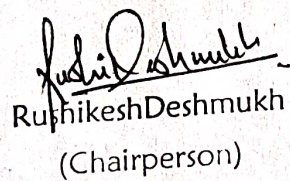 Rushi Deshmukh
RushikeshDeshmukh
(Chairperson)